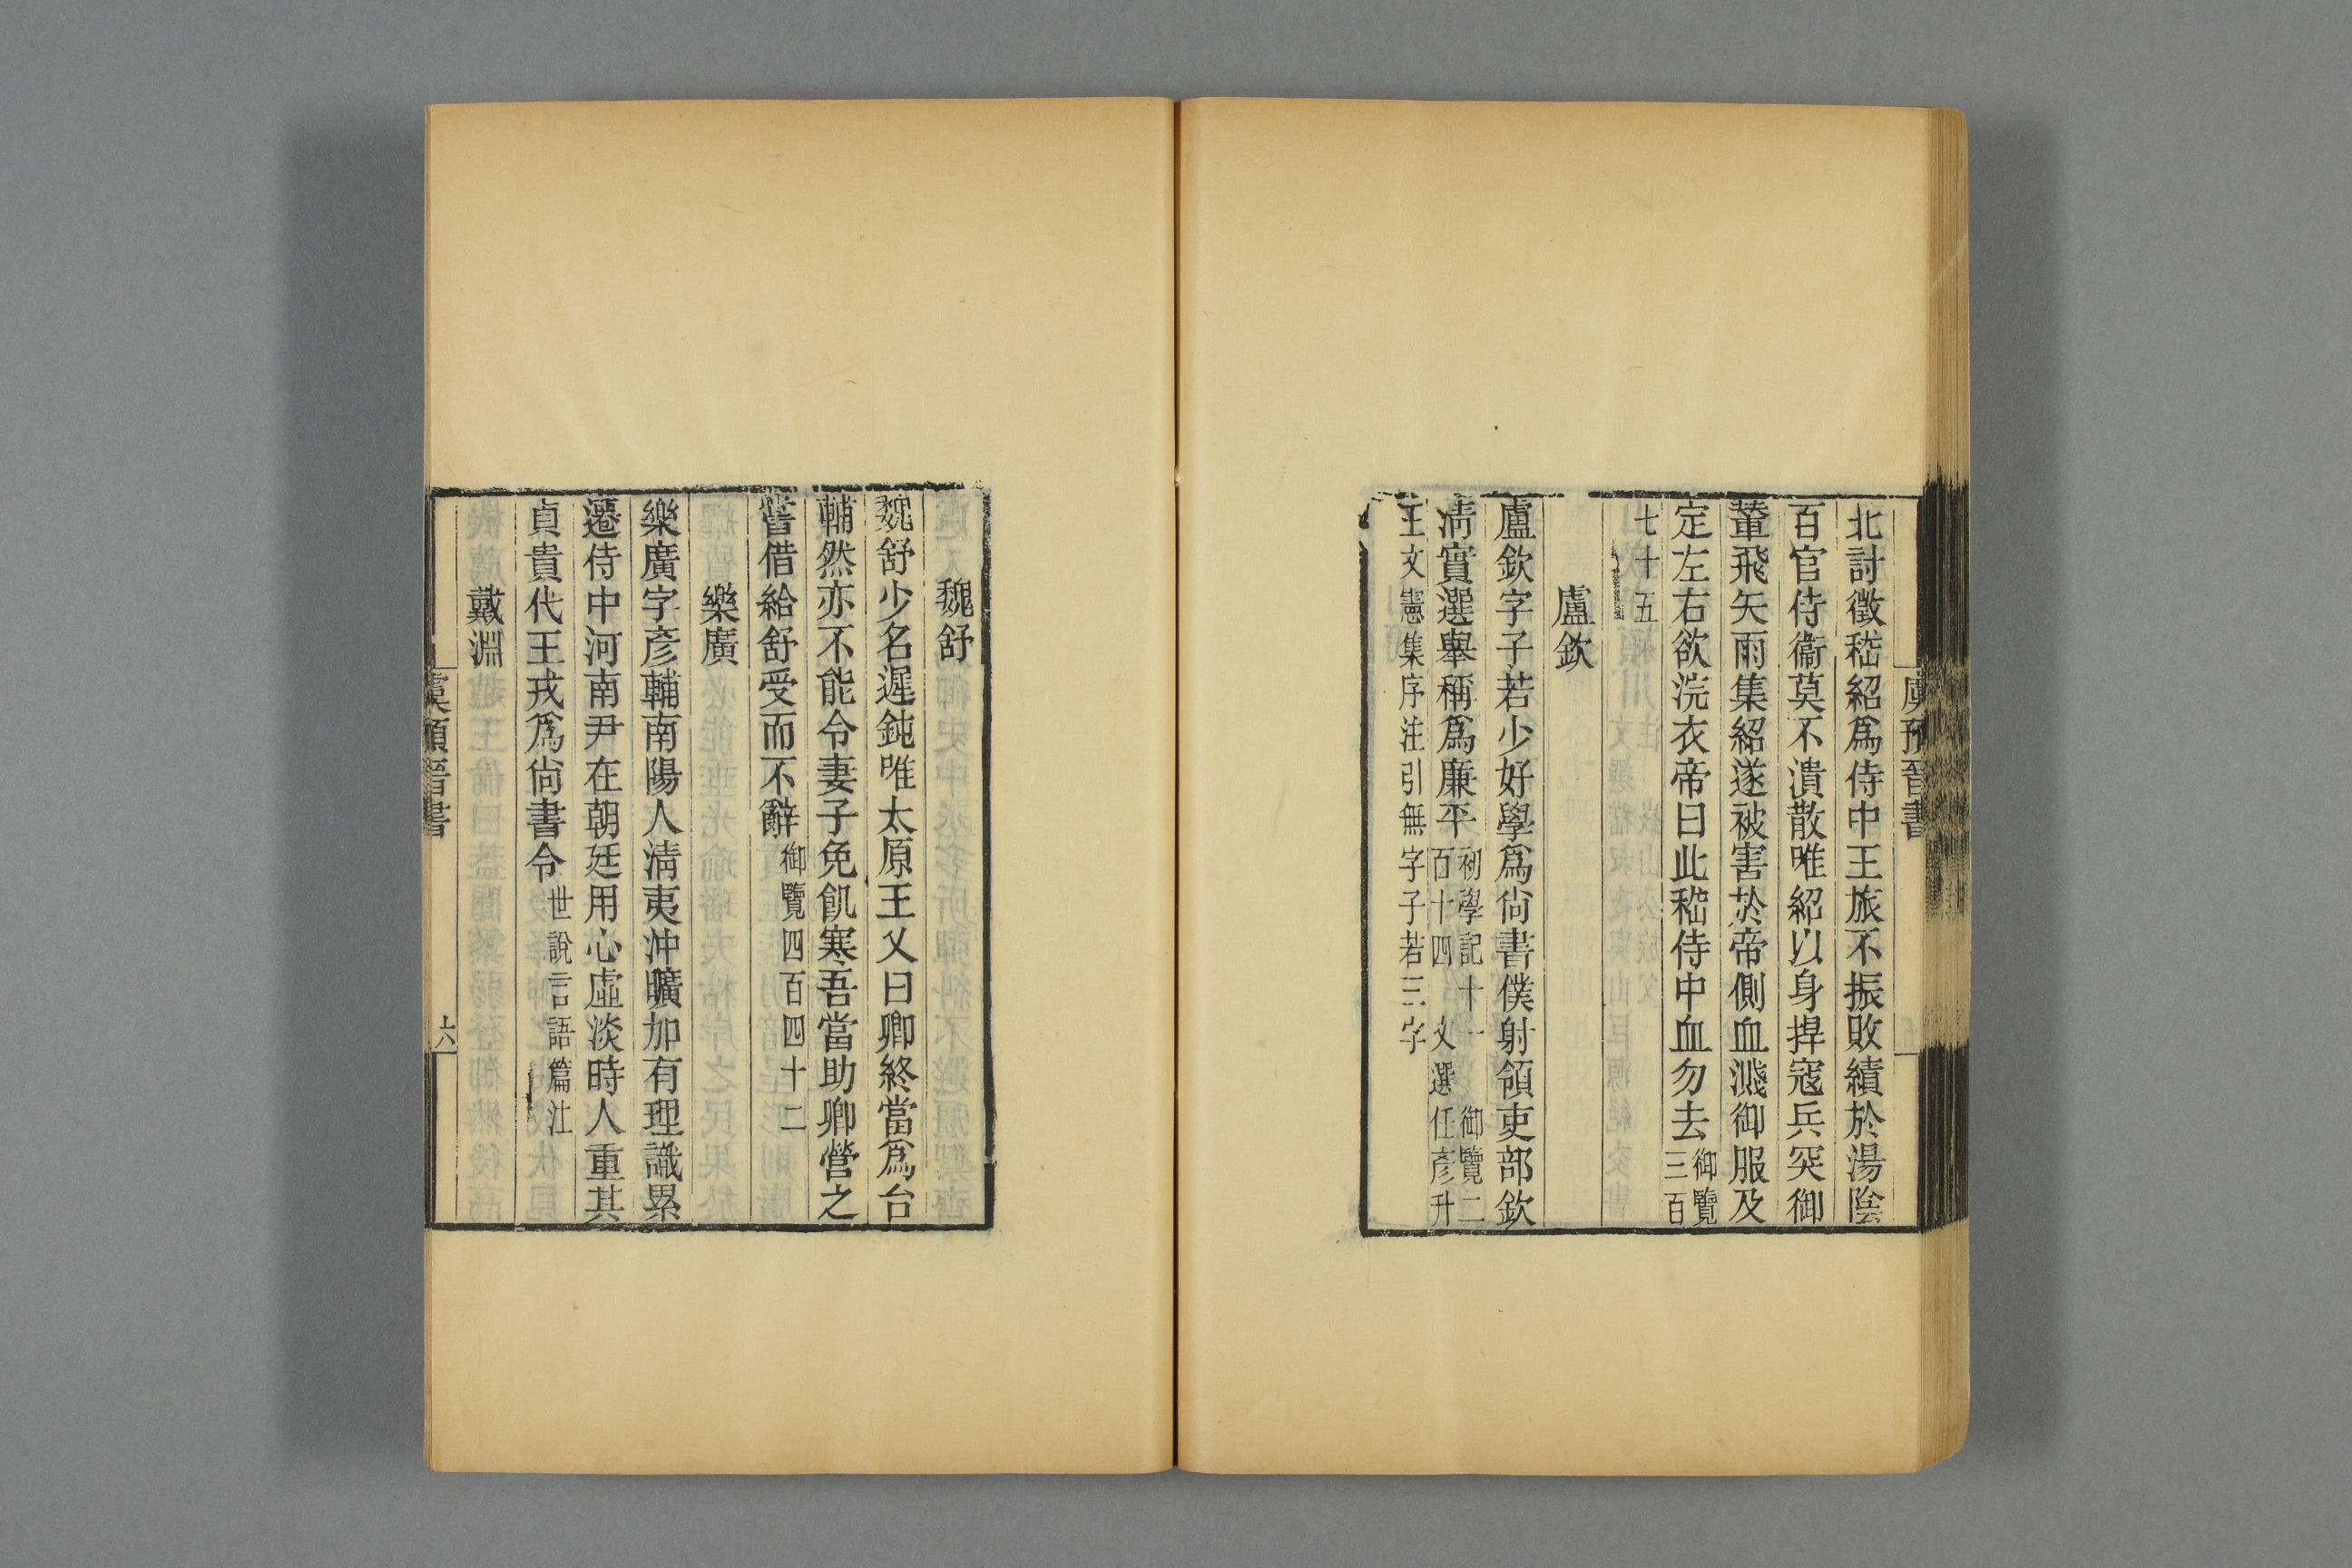 虞預晉書
北討徵嵇紹爲侍中王旅不振敗績於湯陰
百官侍衞莫不潰散唯紹以身捍寇兵突御
輦飛矢雨集紹遂被害於帝側血濺御服及
定左右欲浣衣帝曰此嵇侍中血勿去御覽三百
七十五
盧欽
盧欽字子若少好學爲尙書僕射領吏部欽
淸實選舉稱爲廉平初學記十一 御覽二百十四 文選任彥升
王文憲集序注引無字子若三字
魏舒
魏舒少名遲鈍唯太原王乂曰卿終當爲台
輔然亦不能令妻子免飢寒吾當助卿營之
嘗借給舒受而不辭御覽四百四十二
樂廣
樂廣字彥輔南陽人淸夷沖曠加有理識累
遷侍中河南尹在朝廷用心虛淡時人重其
貞貴代王戎爲尙書令世說言語篇注
戴淵
虞預晉書
六